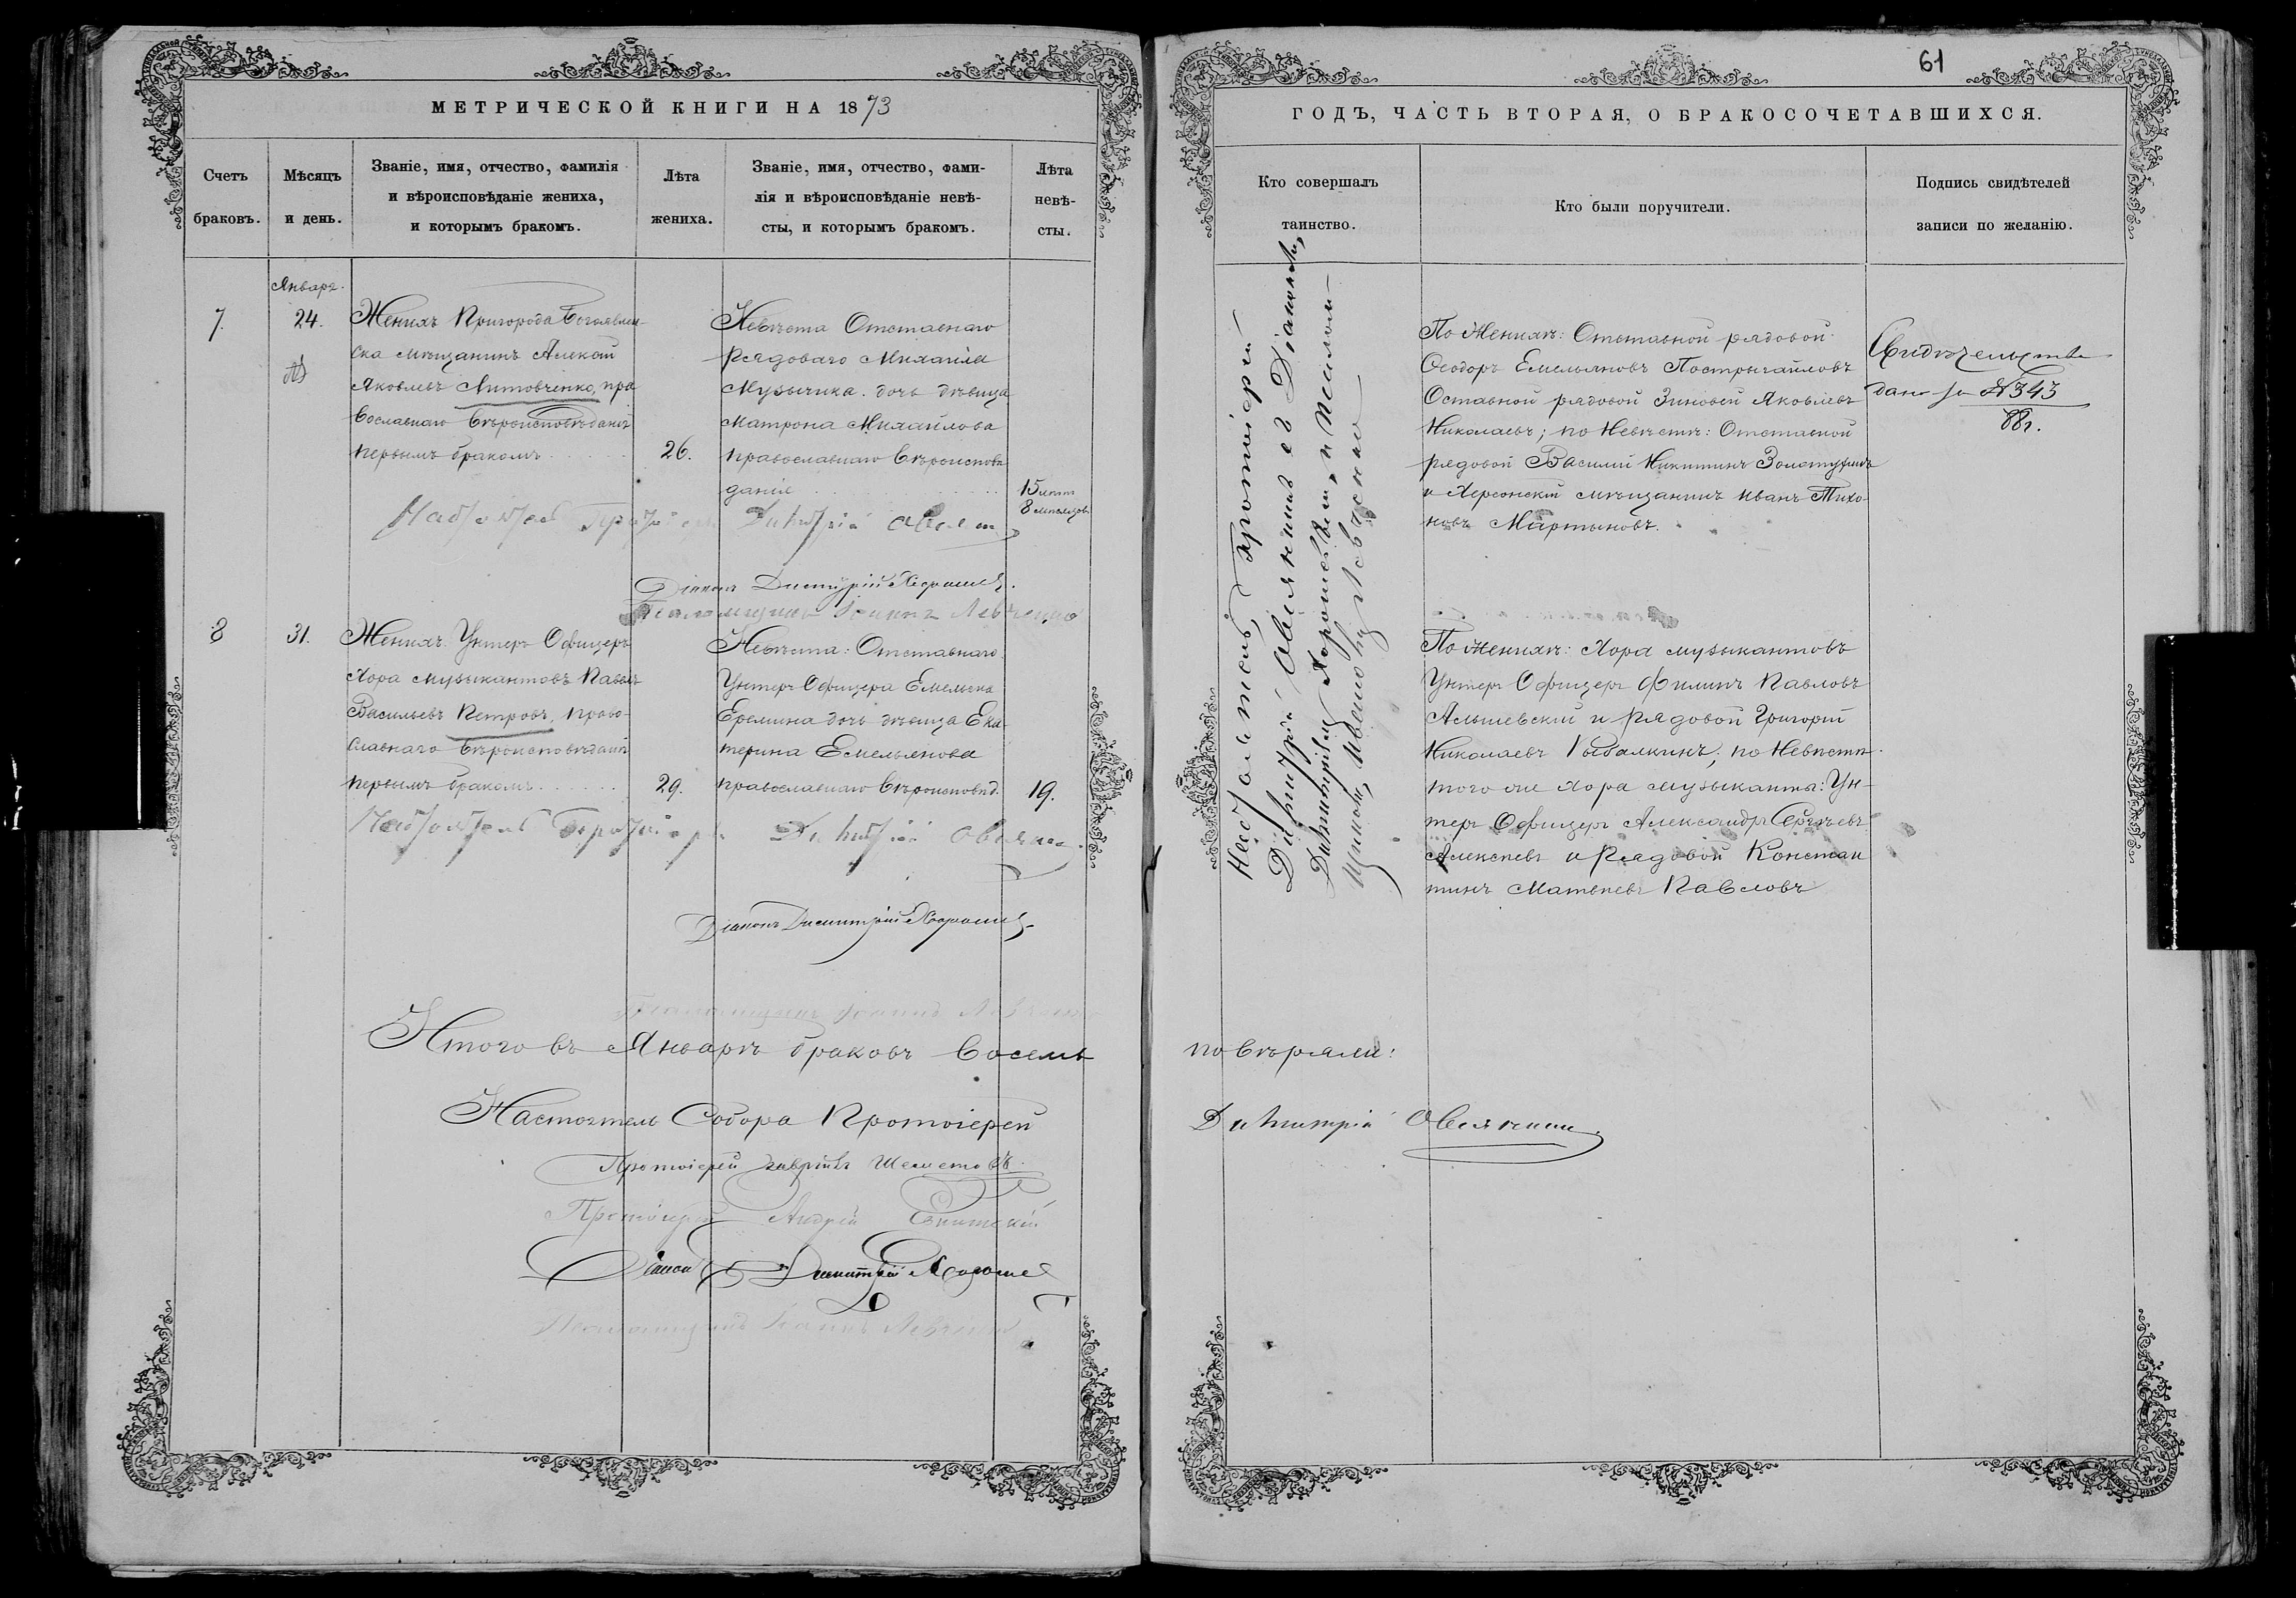 МЕТРИЧЕСКОЙ КНИГИ НА 1873
Счетъ браковъ.
Мѣсяцъ и день.
Званіе, имя, отчество, фамилія
и вѣроисповѣданіе жениха,
и которымъ бракомъ.
Лѣта жениха.
Званіе, имя, отчество, фами-
лія и вѣроисповѣданіе невѣ-
сты, и которымъ бракомъ.
Лѣта невѣ-
сты.
Январь.
7.
24.
Женихъ Пригорода Богоявлен-
ска мѣщанинъ Алексѣй
Яковлевъ Литовченко, пра
вославнаго вѣроисповѣданія
первымъ бракомъ
26.
Невѣста Отставнаго
рядоваго Михаила
Музычика дочь дѣвица
Матрона Михайлова
православнаго вѣроисповѣ
данія
15 лѣтъ
8 мѣсяцовъ
Настоятель Протоіерей Димитрій Овсян
Діаконъ Димитрій Хорошев
Псаломщикъ Іоаннъ Левченко
8
31.
Женихъ Унтеръ Офицеръ
Хора музыкантовъ Павелъ
Васильевъ Петровъ, право-
славнаго вѣроисповѣданія
первымъ бракомъ
29.
Невѣста: Отставнаго
Унтеръ Офицера Емельяна
Еремина дочь дѣвица Ека-
терина Емельянова
православнаго вѣроисповѣд.
19.
Настоятель Протоіерей Димитрій Овсянник
Діаконъ Димитрій Хорошев
Псаломщикъ Іоаннъ Левченко
Итого въ Январѣ браковъ восемь
Настоятель Собора Протоіерей
Протоіерей Гавріилъ Шеметовъ
Протоіерей Андрей
Діаконъ Димитрій Хорошев
Псаломщикъ Іоаннъ Левченко
61
ГОДЪ, ЧАСТЬ ВТОРАЯ, О БРАКОСОЧЕТАВШИХСЯ.
Кто совершалъ
таинство.
Кто были поручители.
Подпись свидѣтелей
записи по желанію.
Настоятель, Протоіерей
Димитрій Овсянник съ Діакономъ
Димитріемъ Хорошев и Псалом-
щикомъ, Иваномъ Левченко
По Женихѣ: Отставной рядовой
Ѳеодоръ Емельяновъ Пострыгайловъ
Оставной рядовой Зиновей Яковлевъ
Николаевъ; по Невѣстѣ: Отставной
рядовой Василий Никитинъ Золотухинъ
и Херсонскій мѣщанинъ Иванъ Тихо-
новъ Мартыновъ.
Свидѣтельство
дано за №343
88г.
По Женихѣ: Хора музыкантовъ
Унтеръ Офицеръ Филипъ Павловъ
Альшевскій и Рядовой Григорій
Николаевъ Рыбалкинъ; по Невѣстѣ
того же хора музыканта: Ун-
теръ Офицеръ Александръ Сергѣевъ
Алексѣевъ и Рядовой Констан
тинъ Матвѣевъ Павловъ
повѣряли:
Димитрій Овсянник